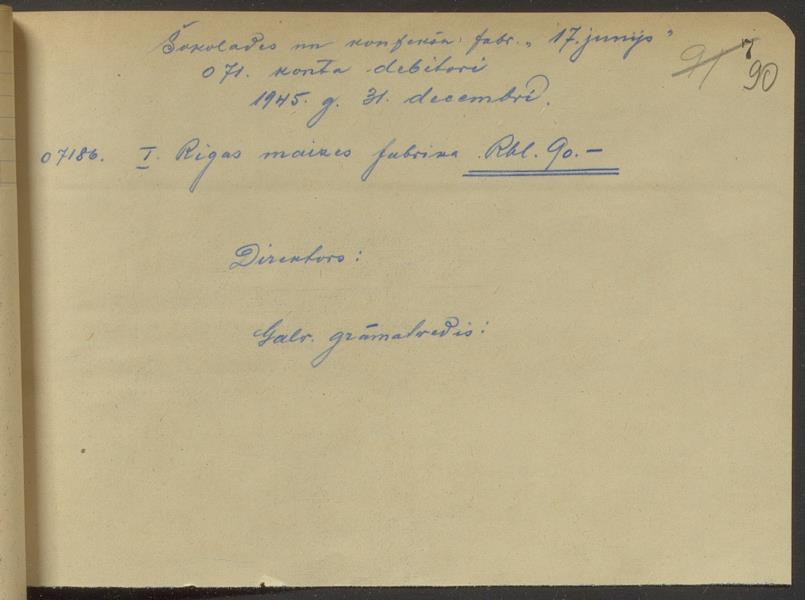 Šokolades un konfekšu fabr. „17. junijs"
071. konta debitori
1945. g. 31. decembrī.
91 7
90
07186. I. Rigas maizes fabrika Rbl. 90.—
Direktors:
Galv. grāmatvedis: